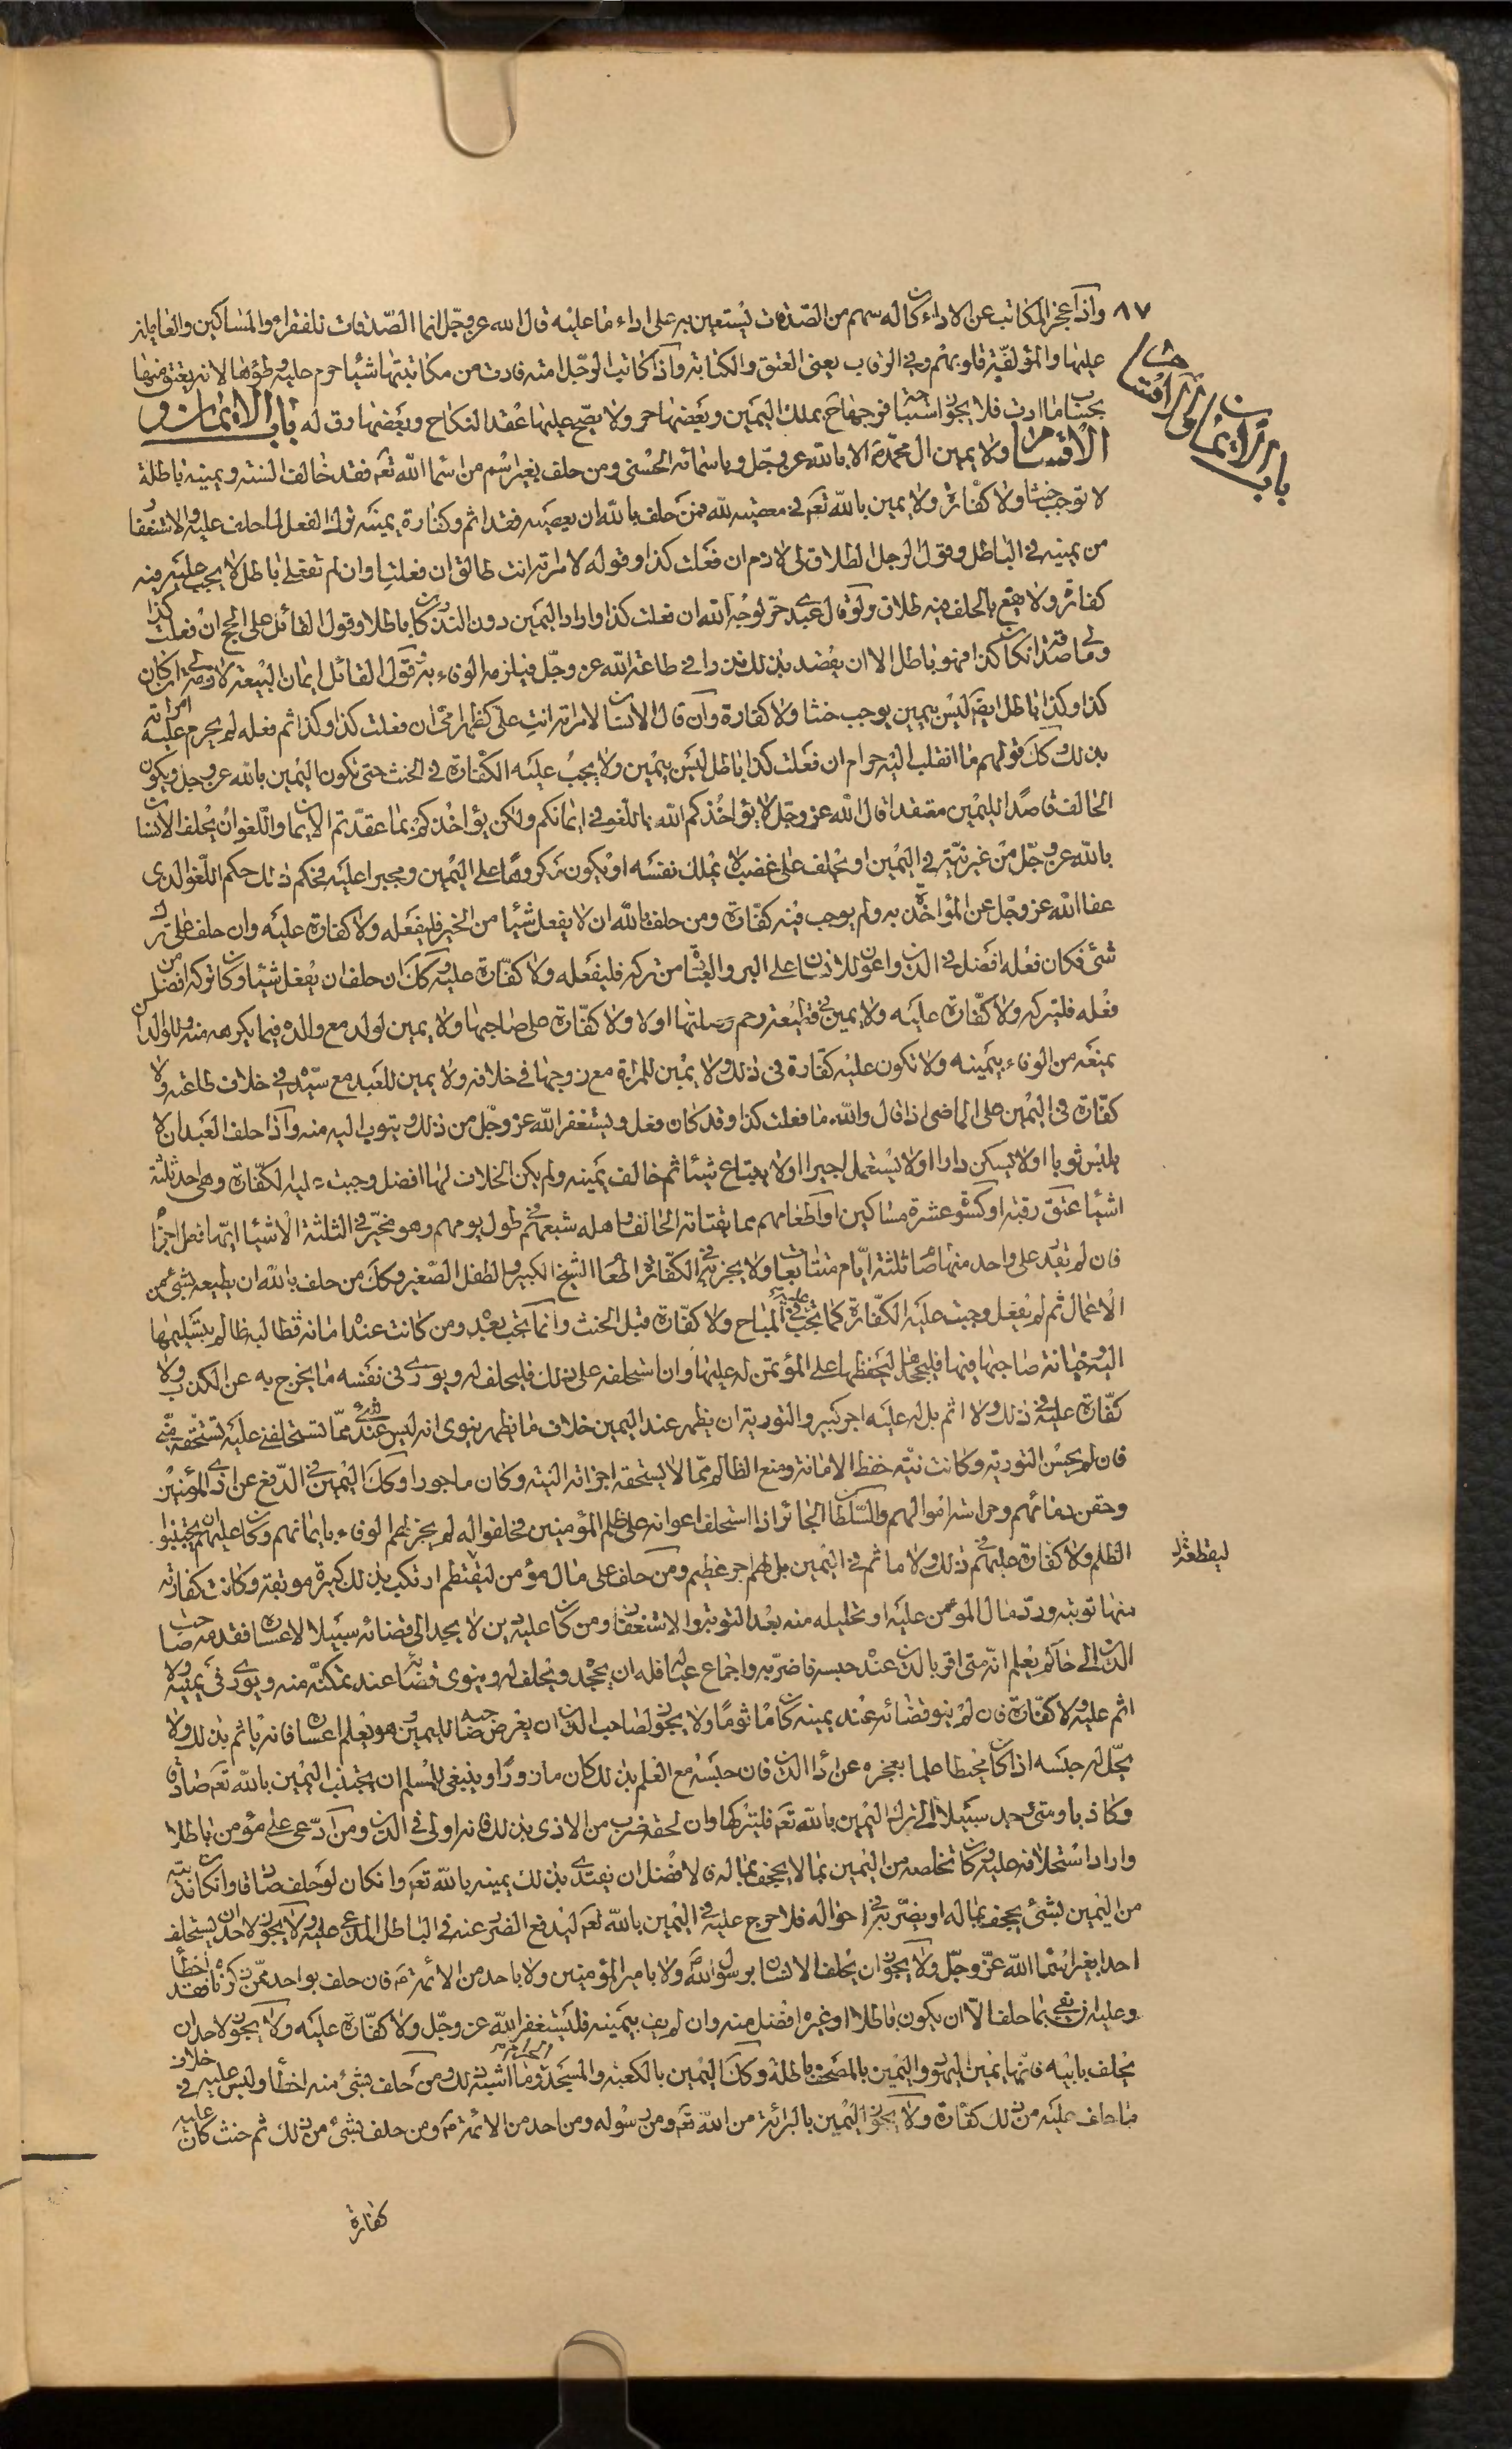 ٨٧
باب الايمان والاقسام
واذا عجز المكاتب عن الاداء كان له سهم من الصدقات يستعين به على اداء ما عليه قال الله عز وجل انما الصدقات للفقراء والمساكين والعاملين
عليها والمؤلفة قلوبهم وفي الرقاب يعني العتق والكتابة واذا كاتب الرجل امته فادت من مكاتبتها شيئا حرم عليه وطؤها لانه يعتق منها
بحساب ما ادت فلا يجوز استباحة فرجها بملك اليمين وبعضها حر ولا يصح عليها عقد النكاح وبعضها رق له باب الايمان و
الاقسام ولا يمين ال محمد الا بالله عز وجل وباسمائه الحسنى ومن حلف بغير اسم من اسماء الله تع فقد خالف السنة ويمينه باطلة
لا توجب حنثا ولا كفارة ولا يمين بالله تع في معصية لله فمن حلف بالله ان يعصيه فقد اثم وكفارة يمينه ترك الفعل لما حلف عليه والاستغفار
من يمينه في الباطل وقول الرجل الطلاق لي لازم ان فعلت كذا وقوله لامرته انت طالق ان فعلت او ان لم تفعلي باطل لا يجب عليه فيه
كفارة ولا يقع بالحلف فيه طلاق ولو قال عبدي حر لوجه الله ان فعلت كذا واراد اليمين دون النذر كان باطلا وقول القائل علي الحج ان فعلت كذا
ومالي صدقة ان كان كذا فهو باطل الا ان يقصد بذلك نذرا في طاعة الله عز وجل فيلزمه الوفاء به وقول القائل ايمان البيعة لازمة لي ان كان
كذا وكذا باطل ايضا ليس بيمين يوجب حنثا ولا كفارة وان قال الانسان لامرته انت علي كظهر امي ان فعلت كذا وكذا ثم فعله لم يحرم عليه امراته
بذلك وكك قولهم ما انقلب اليه حرام ان فعلت كذا باطل ليس بيمين ولا يجب عليه الكفارة في الحنث حتى تكون اليمين بالله عز وجل ويكون
الحالف قاصدا لليمين معتقدا قال الله عز وجل لا يؤاخذكم الله باللغو في ايمانكم ولكن يؤاخذكم بما عقدتم الايمان واللغو ان يحلف الانسان
بالله عز وجل من غير نية في اليمين او يحلف على غضب لا يملك نفسه او يكون مكروها على اليمين ومجبرا عليه فحكم ذلك حكم اللغو الذي
عفا الله عز وجل عن المؤاخذة به ولم يوجب فيه كفارة ومن حلف بالله ان لا يفعل شيئا من الخير فليفعله ولا كفارة عليه وان حلف على ترك
شئ فكان فعله افضل في الدين واعون للانسان على البر والعبادة من تركه فليفعله ولا كفارة عليه وكك ان حلف ان يفعل شيئا وكان تركه افضل من
فعله فليتركه ولا كفارة عليه ولا يمين في قطيعة رحم ولا كفارة على صاحبها ولا يمين لولد مع والده فيما يكرهه منه وللوالد ان
يمنعه من الوفاء بيمينه ولا تكون عليه كفارة في ذلك ولا يمين للمراة مع زوجها في خلافه ولا يمين للعبد مع سيده في خلاف طاعته ولا
كفارة في اليمين على الماضي اذا قال والله ما فعلت كذا وقد كان فعل ويستغفر الله عز وجل من ذلك ويتوب اليه منه واذا حلف العبد ان لا
يلبس ثوبا او لا يسكن دارا او لا يستعمل اجيرا او لا يبتاع شيئا ثم خالف يمينه ولم يكن الخلاف لها افضل وجبت عليه الكفارة وهي احد ثلثة
اشياء عتق رقبة او كسوة عشرة مساكين او اطعامهم مما يقتاته الحالف واهله شبعهم في طول يومهم وهو مخير في الثلثة الاشياء ايها فعل اجزا
فان لم يقدر على واحد منها صام ثلثة ايام متتابعات ولا يجزيه في الكفارة اطعام الشيخ الكبير والطفل الصغير وكك من حلف بالله ان يطيعه بشئ من
الاعمال ثم لم يفعل وجبت عليه الكفارة كما تجب في المباح ولا كفارة قبل الحنث وانما تجب بعده ومن كانت عنده امانة فطالبه ظالم بتسليمها
اليه وخيانة صاحبها فيها فليجحد ليحفظها على المؤتمن له عليها وان استحلفه على ذلك فليحلف له ويوري في نفسه ما يخرج به عن الكذب ولا
كفارة عليه في ذلك ولا اثم بل له عليه اجر كبير والتورية ان يظهر عند اليمين خلاف ما يظهر ينوي انه ليس عندي شئ مما تستحلفني عليه تستحقه مني
فان لم يحسن التورية وكانت نيته حفظ الامانة ومنع الظالم مما لا يستحقه اجزاته النية وكان ماجورا وكك اليمين في الدفع عن اذى المؤمنين
وحقن دمائهم وحراسة اموالهم والسلطان الجائر اذا استحلف اعوانه على ظلم المؤمنين فحلفوا له لم يجز لهم الوفاء بايمانهم وكان عليهم ان يجتنبوا
الظلم ولا كفارة عليهم في ذلك ولا ماثم في اليمين بل لهم اجر عظيم ومن حلف على مال مؤمن ليقتطعه ارتكب بذلك كبيرة موبقة وكانت كفارته
منها توبته ورد مال المؤمن عليه او تحليله منه بعد التوبة والاستغفار ومن كان عليه دين لا يجد الى قضائه سبيلا لاعساره فقدمه صاحب
الدين الى حاكم يعلم انه متى اقر بالدين عنده حبسه فاضر به واجاع عياله فله ان يجحد ويحلف له وينوي قضائه عند تمكنه منه ويوري في يمينه ولا
اثم عليه ولا كفارة فان لم ينو قضائه عند يمينه كان ماثوما ولا يجوز لصاحب الدين ان يعرض صاحبه لليمين وهو يعلم اعساره فانه ياثم بذلك ولا
يحل له حبسه اذا كان محيطا علما بعجزه عن اداء الدين فان حبسه مع العلم بذلك كان مازورا وينبغي للمسلم ان يجتنب اليمين بالله تع صادقا
وكاذبا ومتى وجد سبيلا الى ترك اليمين بالله تع فليتركها وان لحقه ضرب من الاذى بذلك فانه اولى في الدين ومن ادعى على مؤمن باطلا
واراد استحلافه عليه وكان تخلصه من اليمين بما لا يجحف بماله فالافضل ان يفتدي بذلك يمينه بالله تع وان كان لو حلف صادقا وان كان
من اليمين بشئ يجحف بماله او يضر به في احواله فلا حرج عليه في اليمين بالله تع ليدفع الضرر عنه في الباطل المدعى عليه ولا يجوز لاحد ان يستحلف
احدا بغير اسماء الله عز وجل ولا يجوز ان يحلف الانسان برسول الله ص ولا بامير المؤمنين ولا باحد من الائمة ع فان حلف بواحد ممن ذكرناه فقد اخطأ
وعليه ان يفي بما حلف الا ان يكون باطلا او غيره افضل منه وان لم يف بيمينه فليستغفر الله عز وجل ولا كفارة عليه ولا يجوز لاحد ان
يحلف بابيه فانها يمين اليهود واليمين بالمصحف باطلة وكك اليمين بالكعبة والمسجد وما اشبه ذلك ومن حلف بشئ منه اخطأ وليس عليه في خلاف
ما حلف عليه من ذلك كفارة ولا يجوز اليمين بالبرائة من الله تع ومن رسوله ومن احد من الائمة ع ومن حلف بشئ من ذلك ثم حنث كان عليه
كفارة